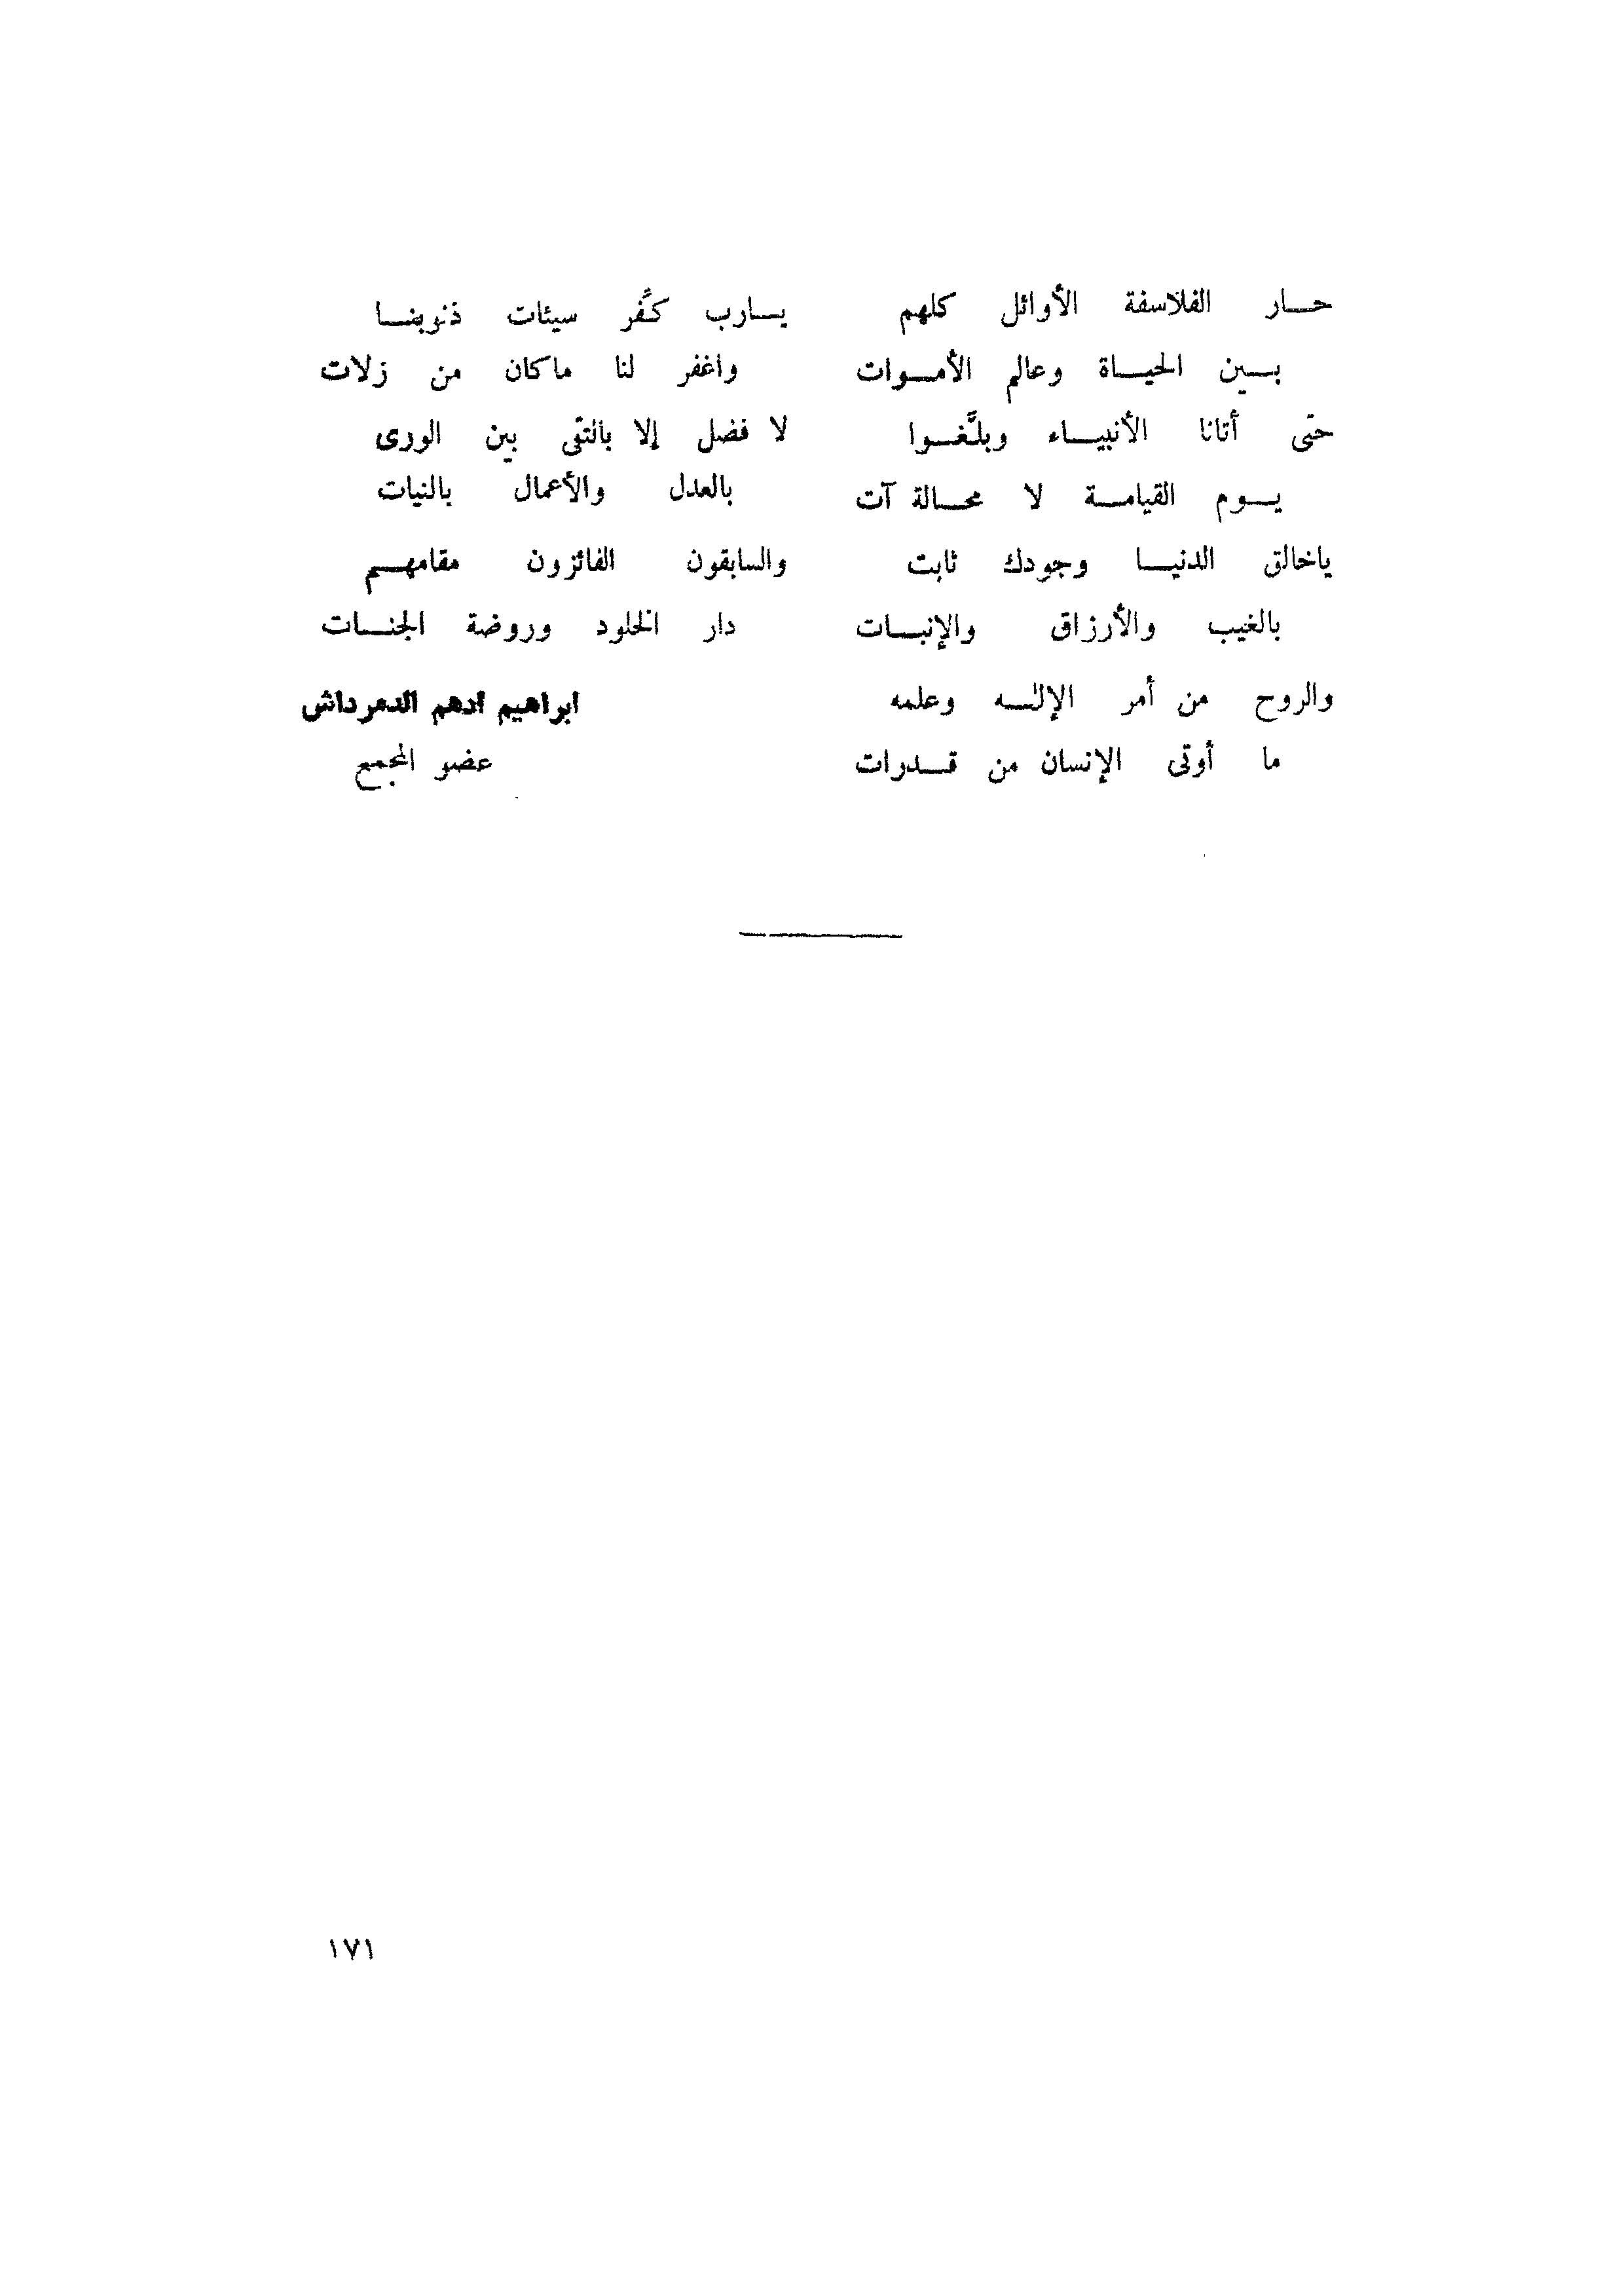 حار الفلاسفة الأوائل كلهم
بين الحياة وعالم الأموات
حتى أتانا الأنبياء وبلَّغوا
يوم القيامة لا محالة آت
ياخالق الدنيا وجودك ثابت
بالغيب والأرزاق والإنبات
والروح من أمر الإله وعلمه
ما أوتى الإنسان من قدرات
يارب كفِّر سيئات ذنوبنا
واغفر لنا ماكان من زلات
لا فضل إلا بالتقى بين الورى
بالعدل والأعمال بالنيات
والسابقون الفائزون مقامهم
دار الخلود وروضة الجنات
ابراهيم أدهم الدمرداش
عضو المجمع
١٧١